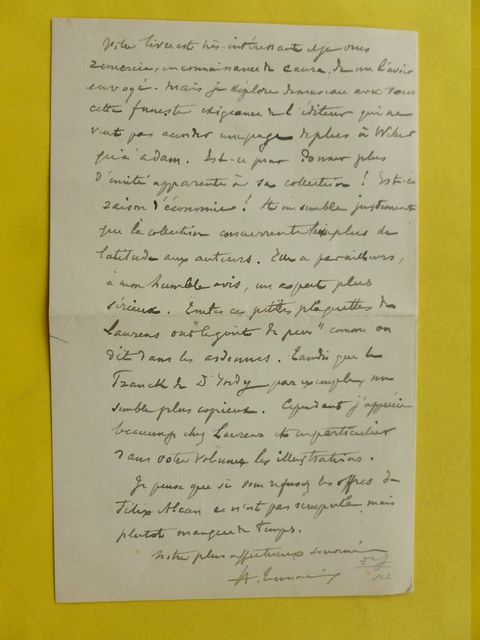 Votre livre est très-intéressant et je vous
remercie, en connaissance de cause, de me l'avoir
envoyé. Mais je déplore de nouveau avec vous
cette funeste exigeance de l'éditeur qui ne
veut pas accorder une page de plus à Weber
qu'à Adam. Est-ce pour donner plus
d'unité apparente à sa collection ! Est-ce
raison d'économie ! Il me semble justement
que la collection concurrente laisse plus de
latitude aux auteurs. Elle a par ailleurs,
à mon humble avis, un aspect plus
sérieux. Toutes ces petites plaquettes de
Laurens ont "le goût de peu" comme on
dit dans les ardennes. Tandis que le
Franck de D'Indy, par exemple, me
semble plus copieux. Cependant j'apprécie
beaucoup chez Laurens et en particulier
dans votre volume les illustrations.
Je pense que si vous refusez les offres de
Félix Alcan ce n'est pas scrupule mais
plutôt manque de temps.
Votre plus affectueux souvenir